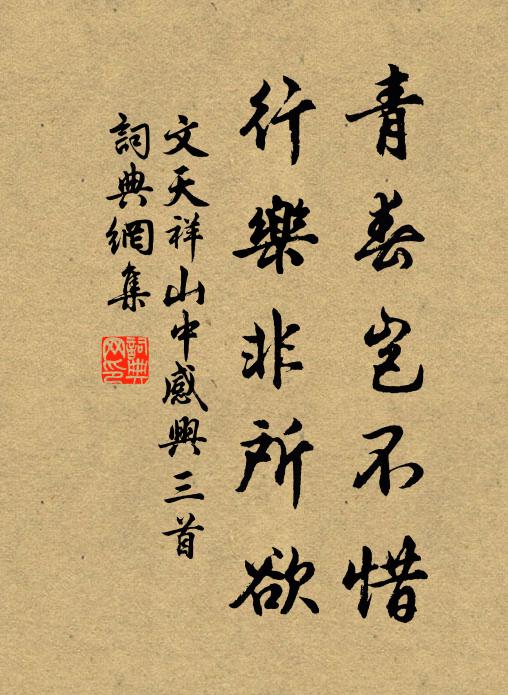 青春豈不惜
行樂非所欲
文天祥山中感興三首
詞典網集
詞典
网印